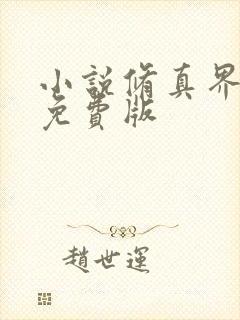 小說脩真界
免費版
趙世運